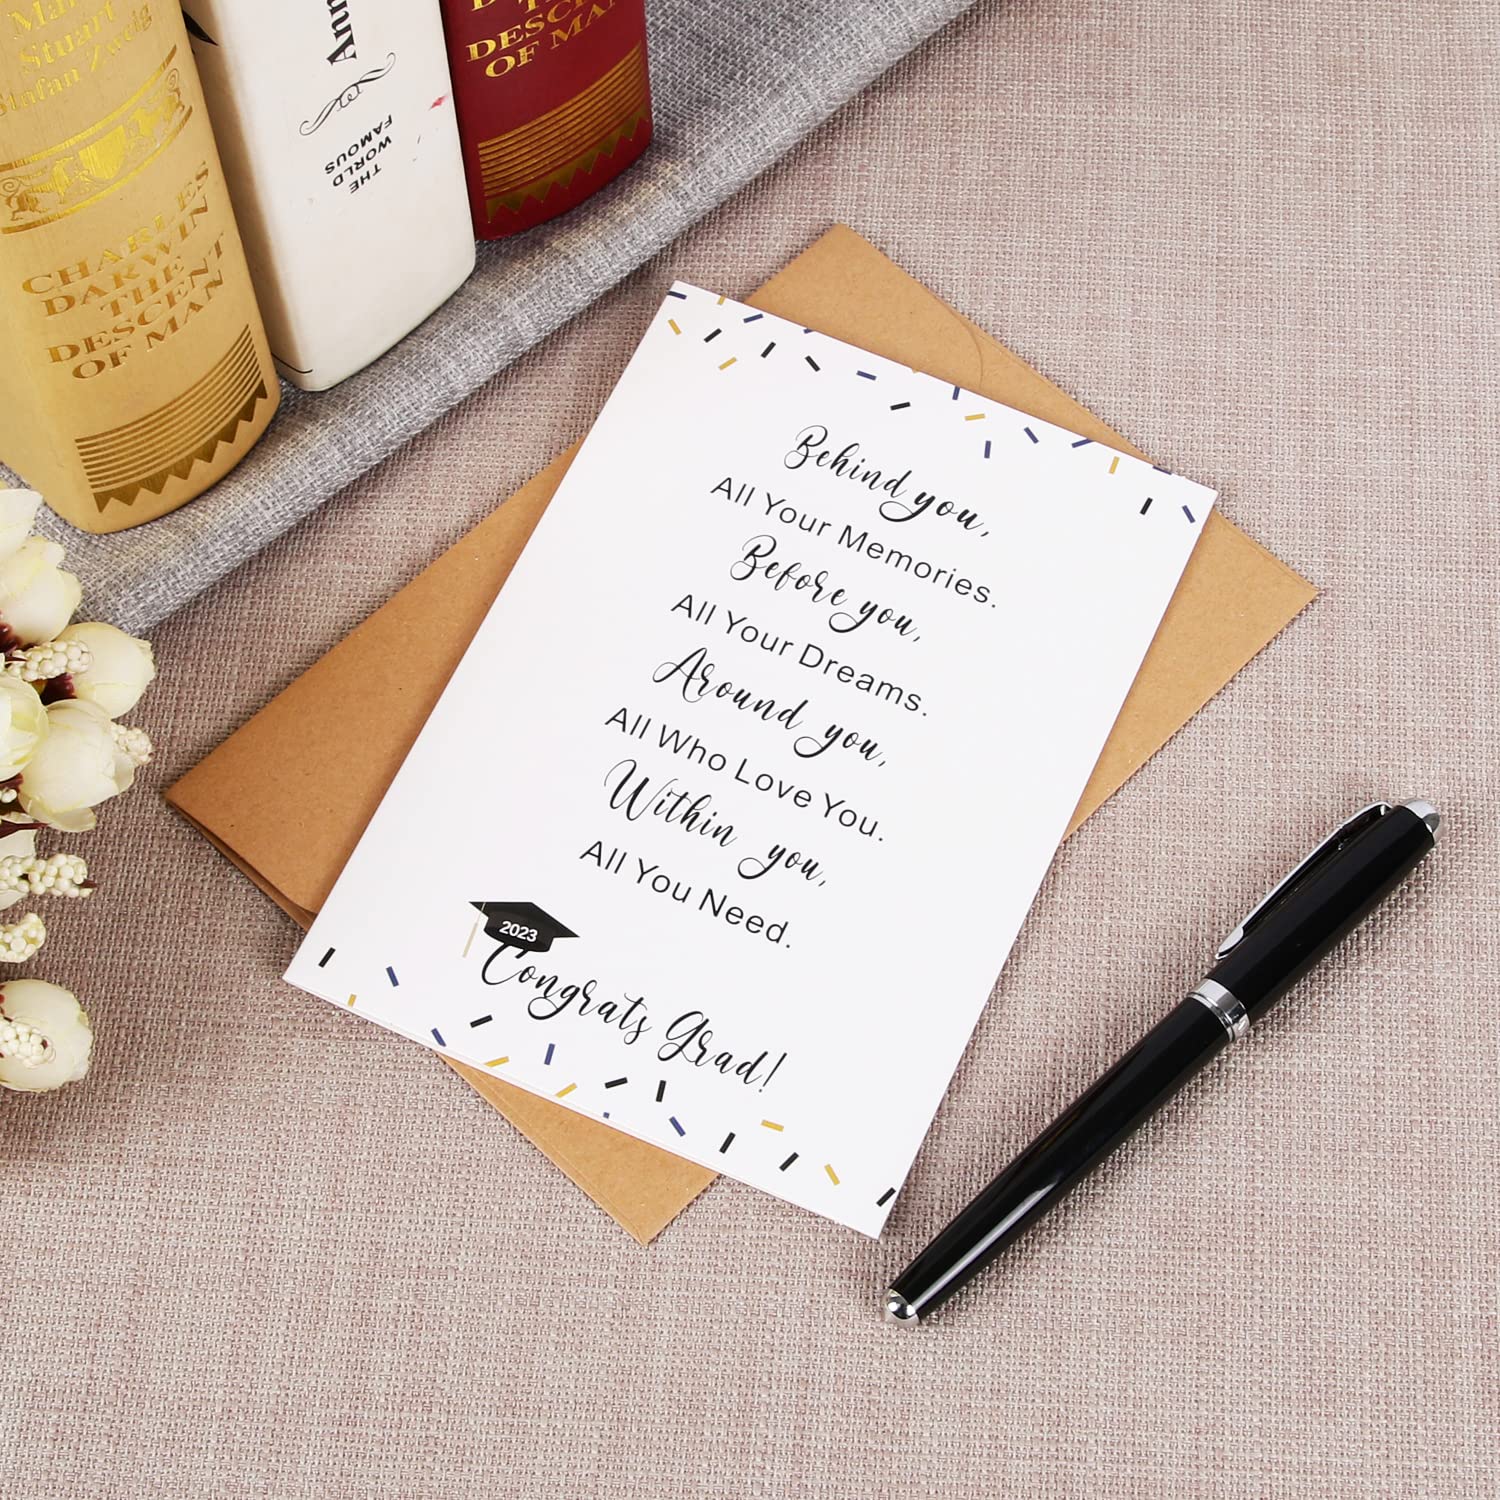 Mar
Stuart
Stefan Zweig
CHARLES
DARWIN
THE
DESCENT
OF MAN
Ann
THE
WORLD
FAMOUS
DESC
OF MA
Behind you,
All Your Memories.
Before you,
All Your Dreams.
Around you,
All Who Love You.
Within you,
All You Need.
2023
Congrats Grad!